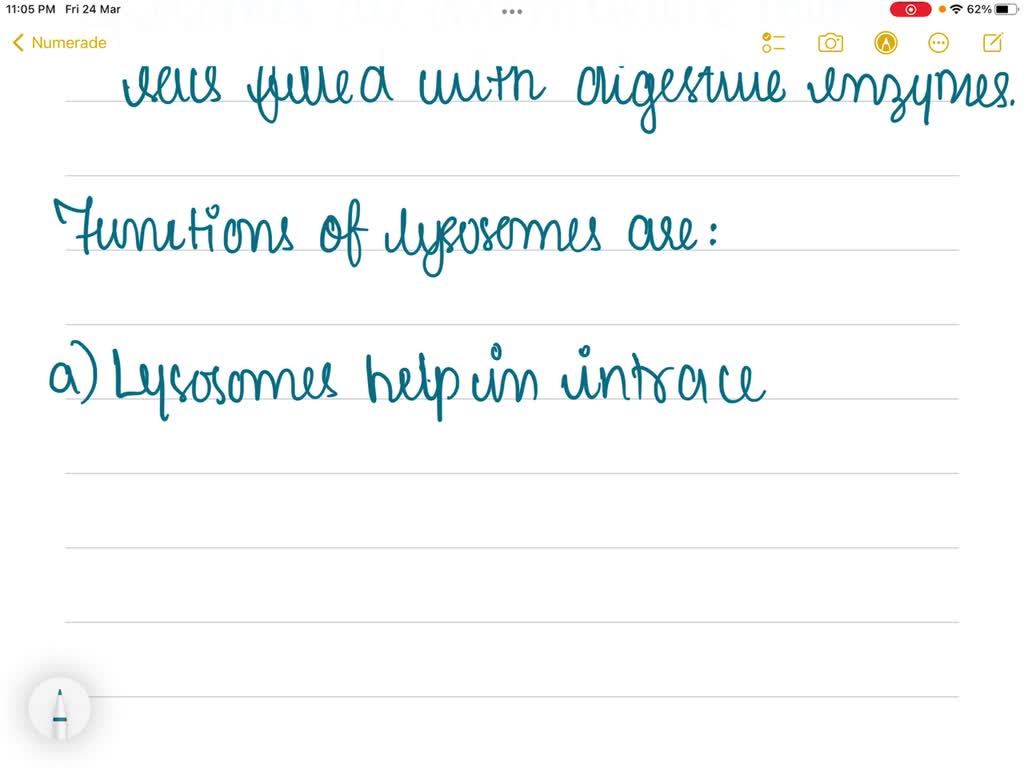 11:05 PM Fri 24 Mar
62%
Numerade
filled with digestive enzymes.
Functions of lysosomes are:
a) Lysosomes help in intrace